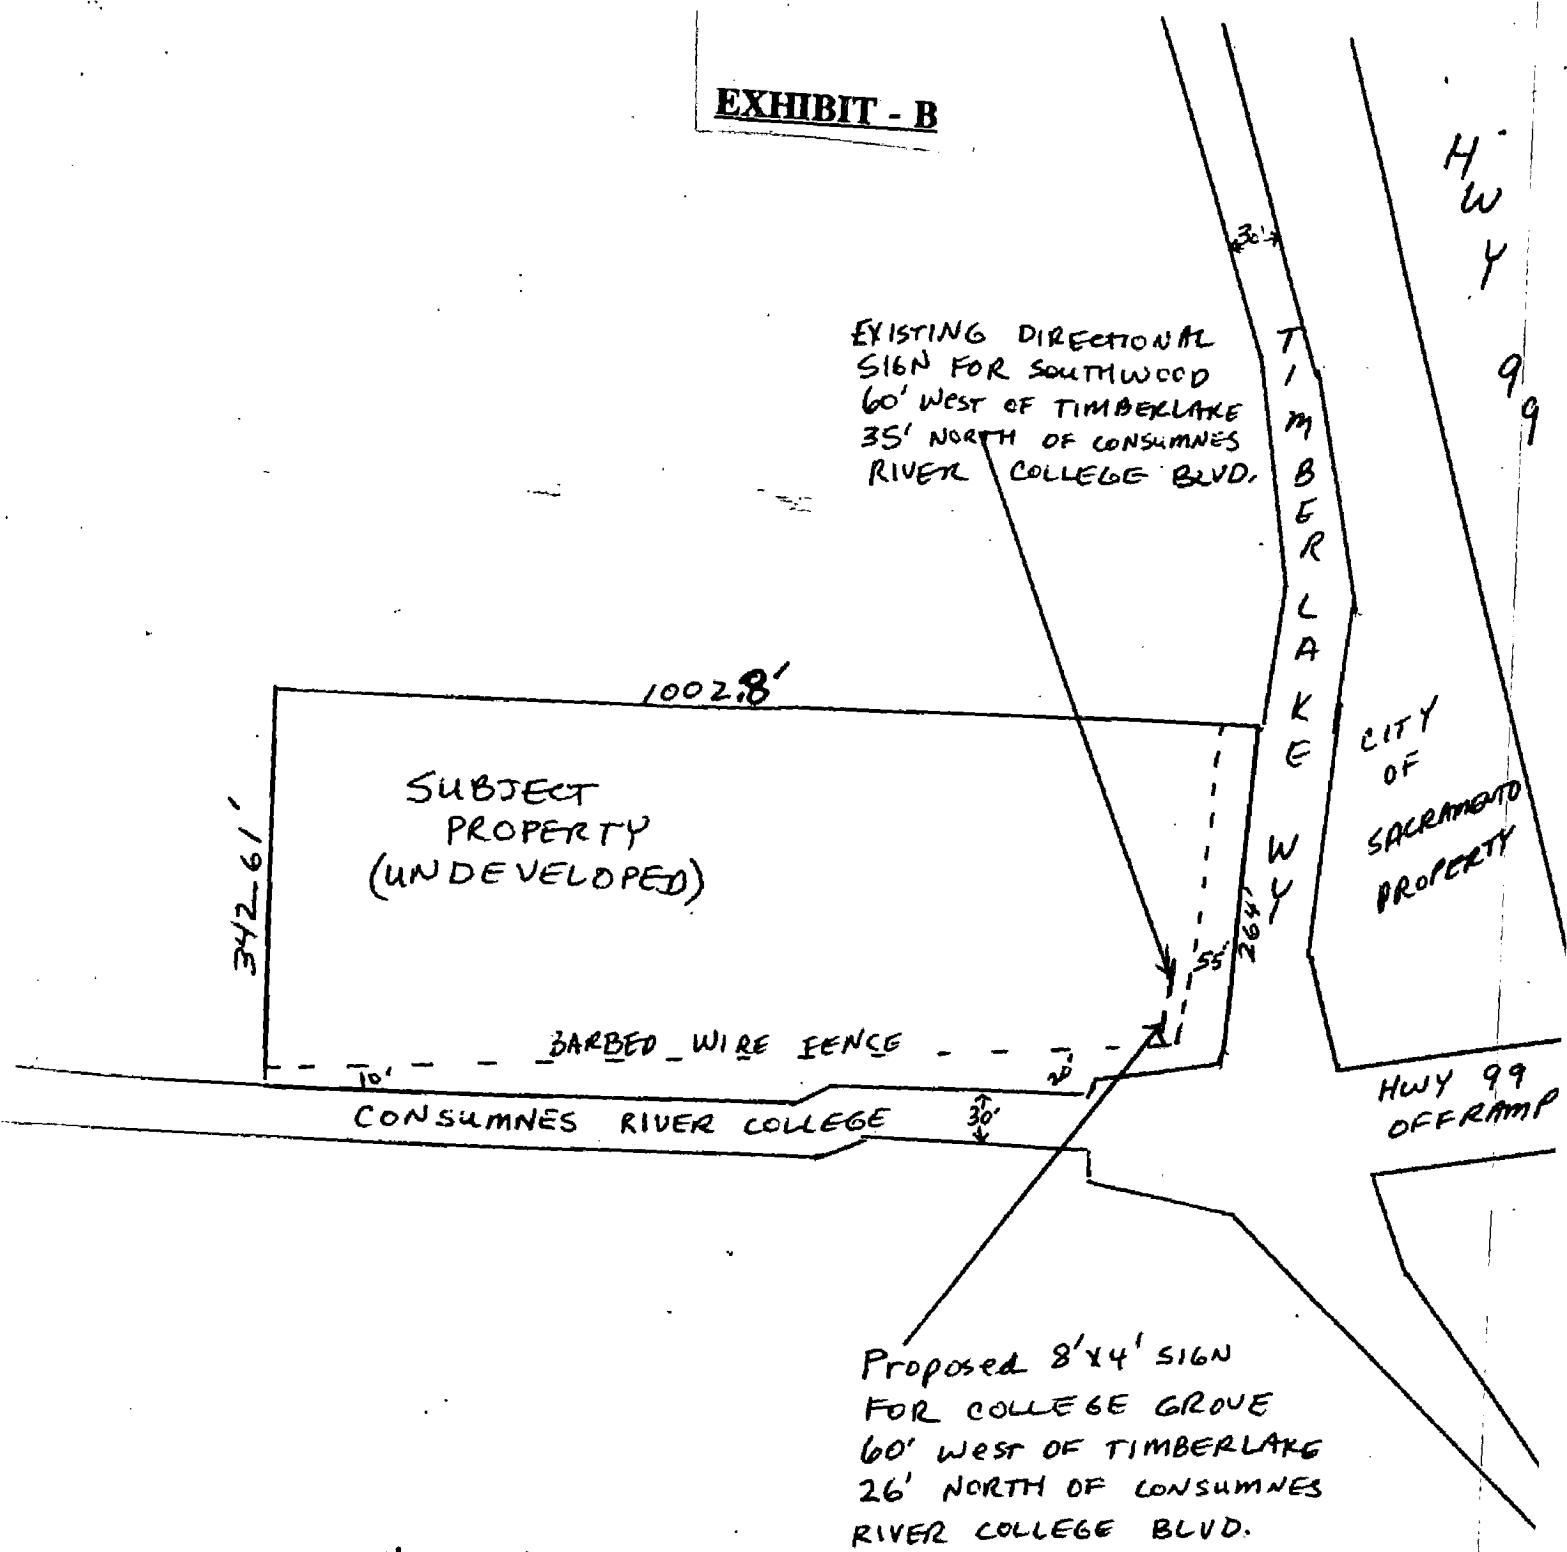 EXHIBIT - B
HWY 99
30'
EXISTING DIRECTIONAL
SIGN FOR SOUTHWOOD
60' WEST OF TIMBERLAKE
35' NORTH OF CONSUMNES
RIVER COLLEGE BLVD.
TIMBERLAKE WY
1002.8'
SUBJECT
PROPERTY
(UNDEVELOPED)
342.61'
CITY
OF
SACRAMENTO
PROPERTY
264'
55'
BARBED WIRE FENCE
10'
20'
CONSUMNES RIVER COLLEGE
30'
HWY 99
OFFRAMP
Proposed 8'x4' SIGN
FOR COLLEGE GROVE
60' WEST OF TIMBERLAKE
26' NORTH OF CONSUMNES
RIVER COLLEGE BLVD.